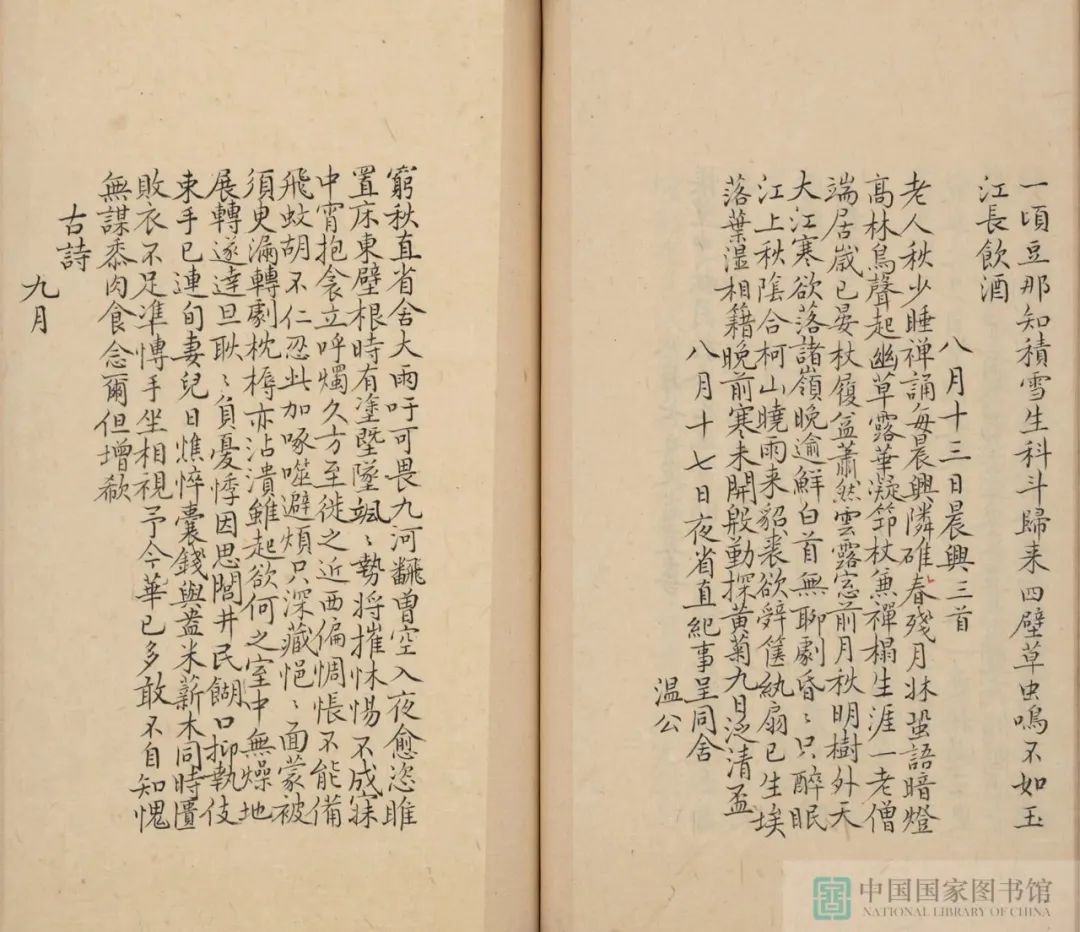 一頃豆那知積雪生科斗歸来四壁草虫鳴不如玉
江長飲酒
八月十三日晨興三首
老人秋少睡禅誦每晨興隣碓春殘月牀蛩語暗燈
高林鳥聲起幽草露華凝笻杖兼禪榻生涯一老僧
端居歳已晏杖履益蕭然雲露窓前月秋明樹外天
大江寒欲落諸嶺晚逾鮮白首無聊劇昏〻只醉眠
江上秋陰合柯山曉雨来貂裘欲辤篋紈扇已生埃
落葉濕相籍晚前寒未開殷勤探黄菊九日泛清盃
八月十七日夜省直紀事呈同舍
温公
窮秋直省舍大雨吁可畏九河飜曽空入夜愈恣睢
置床東壁根時有塗塈墜颯〻勢将摧怵惕不成寐
中宵抱衾立呼燭久方至徙之近西偏惆悵不能備
飛蚊胡不仁忍此加啄噬避煩只深藏悒〻面蒙被
須臾漏轉劇枕槈亦沾潰雖起欲何之室中無燥地
展轉遂逹旦耿〻負憂悸因思閭井民餬口抑執伎
束手已連旬妻兒日憔悴囊錢與盎米薪木同時匱
敗衣不足準愽手坐相視予今華已多敢不自知愧
無謀黍肉食念爾但增欷
古詩
九月
中国国家图书馆
NATIONAL LIBRARY OF CHINA